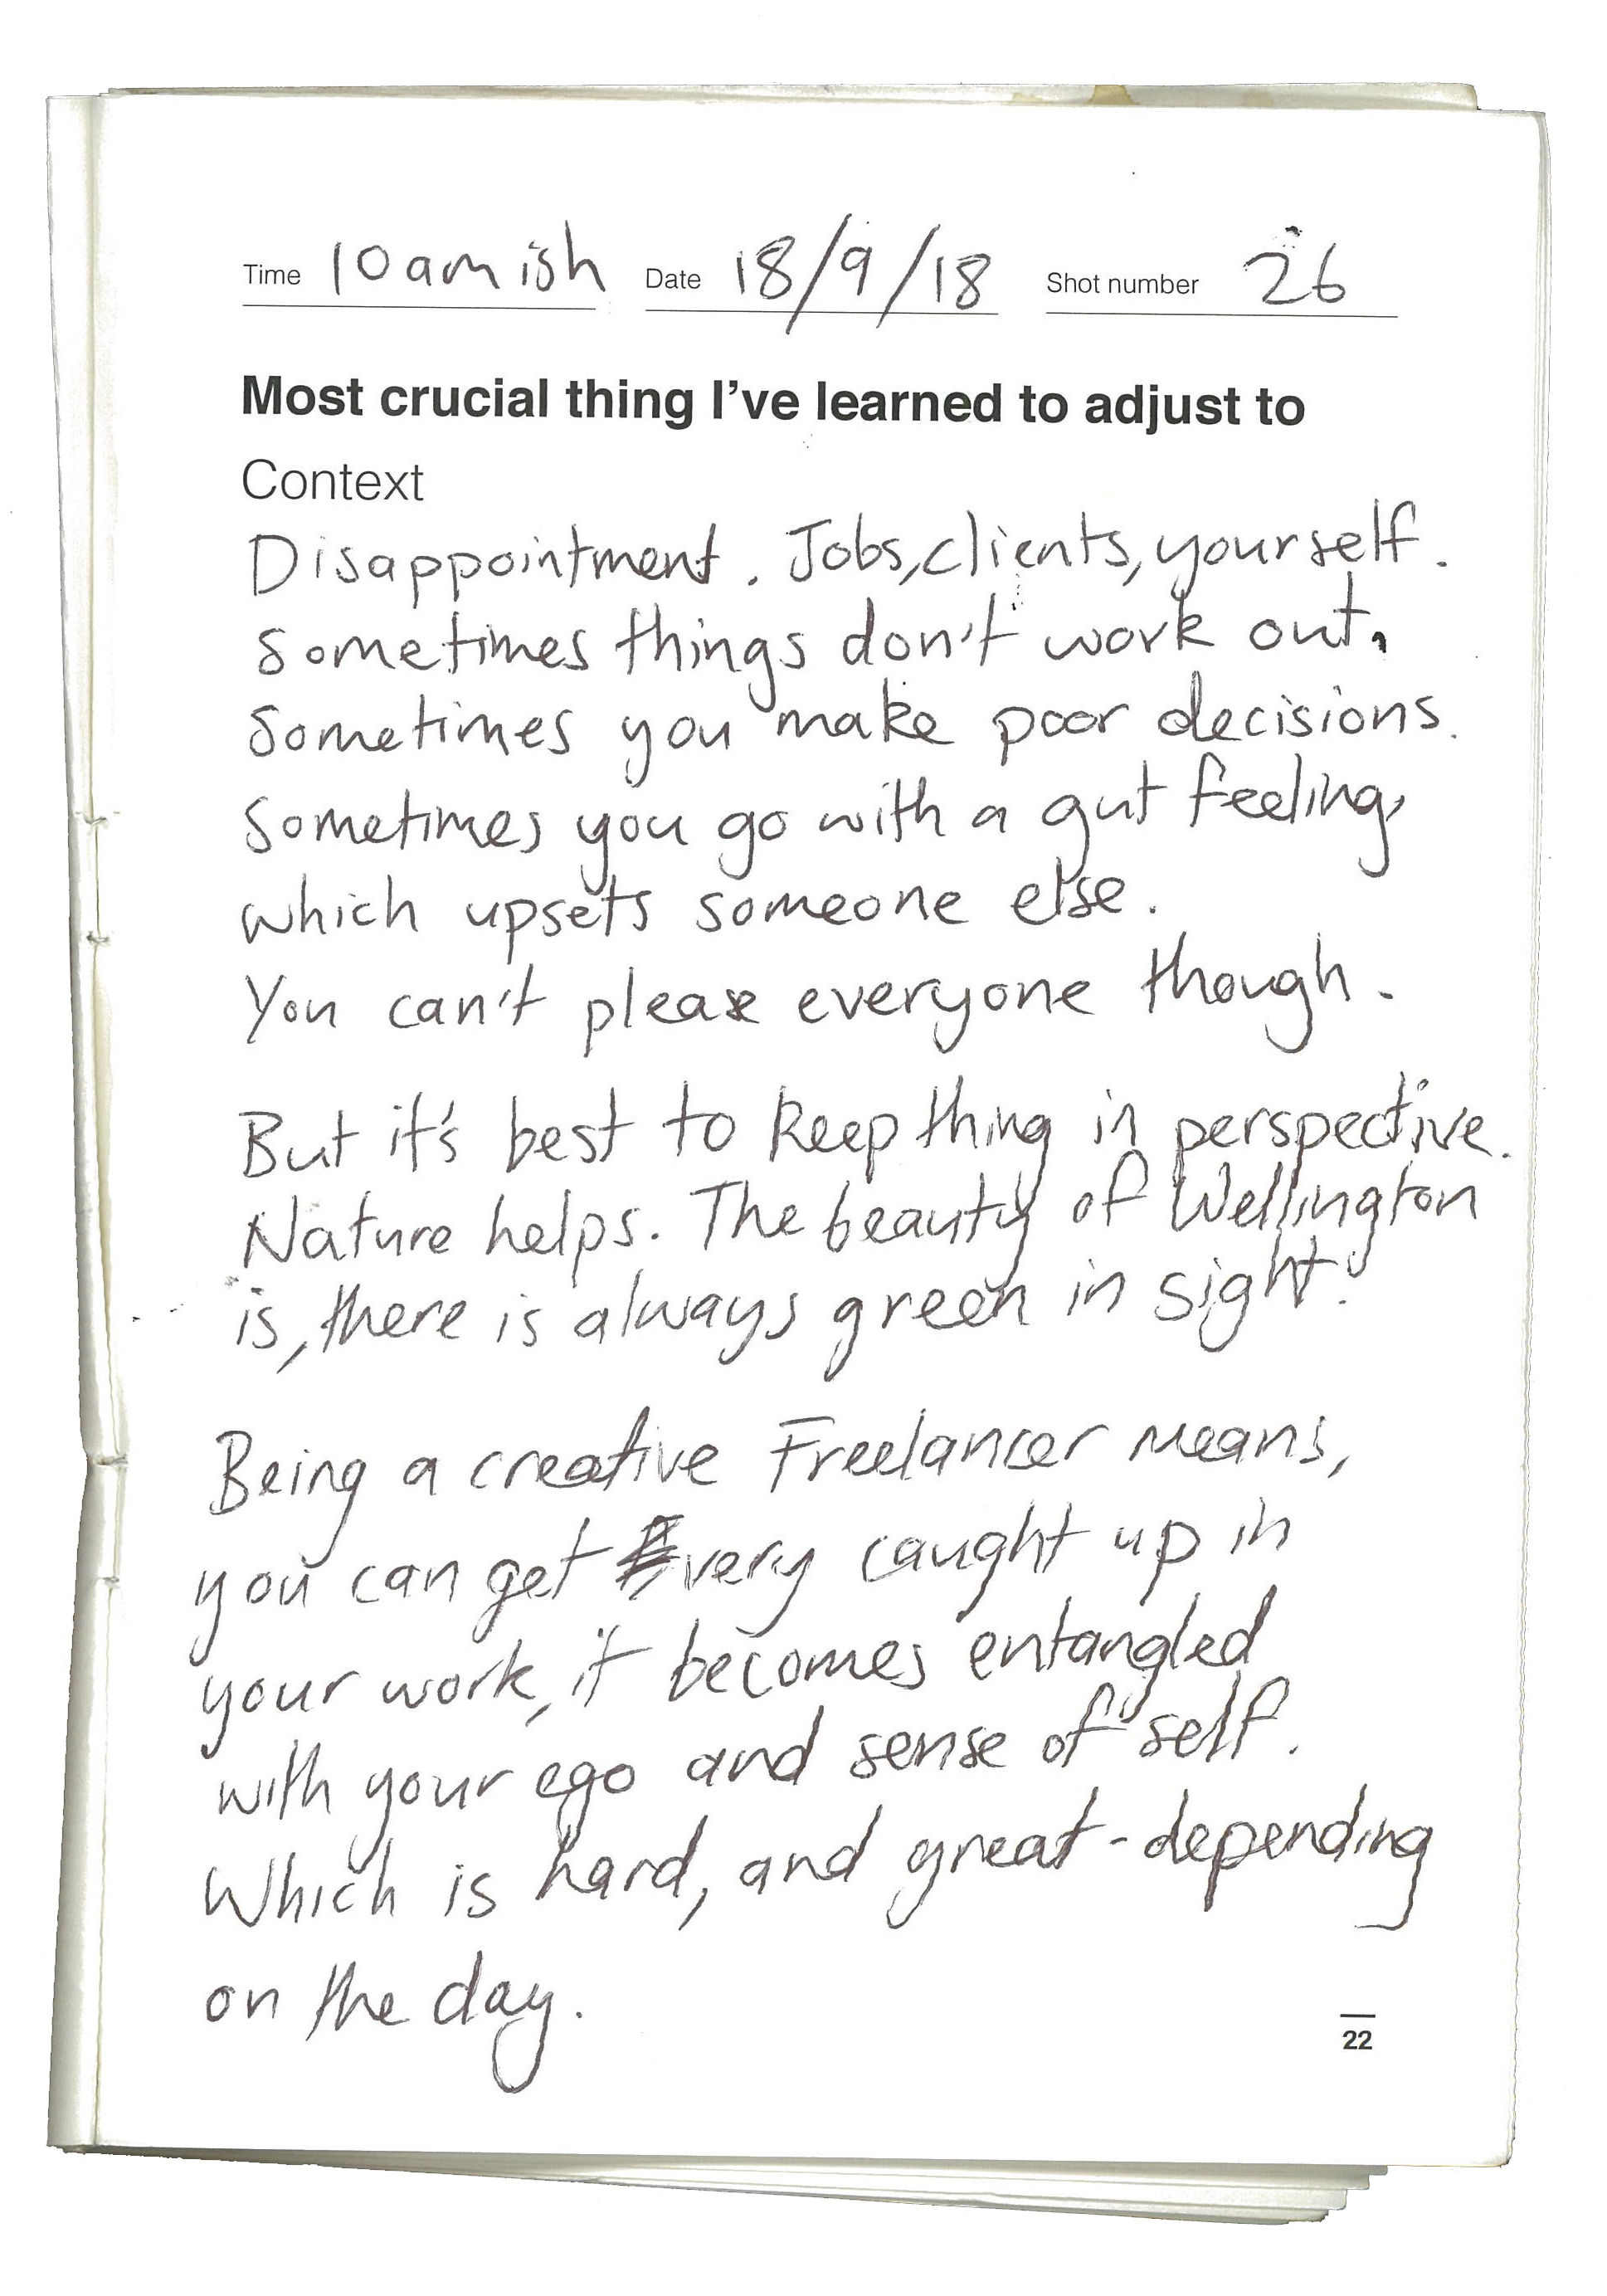 Time 10amish Date 18/9/18 Shot number 26
Most crucial thing I've learned to adjust to
Context
Disappointment. Jobs, clients, yourself.
Sometimes things don't work out.
Sometimes you make poor decisions.
Sometimes you go with a gut feeling,
which upsets someone else.
You can't please everyone though.
But it's best to keep thing in perspective.
Nature helps. The beauty of Wellington
is, there is always green in sight!
Being a creative Freelancer means,
you can get very caught up in
your work, it becomes entangled
with your ego and sense of self.
Which is hard, and great - depending
on the day.
22